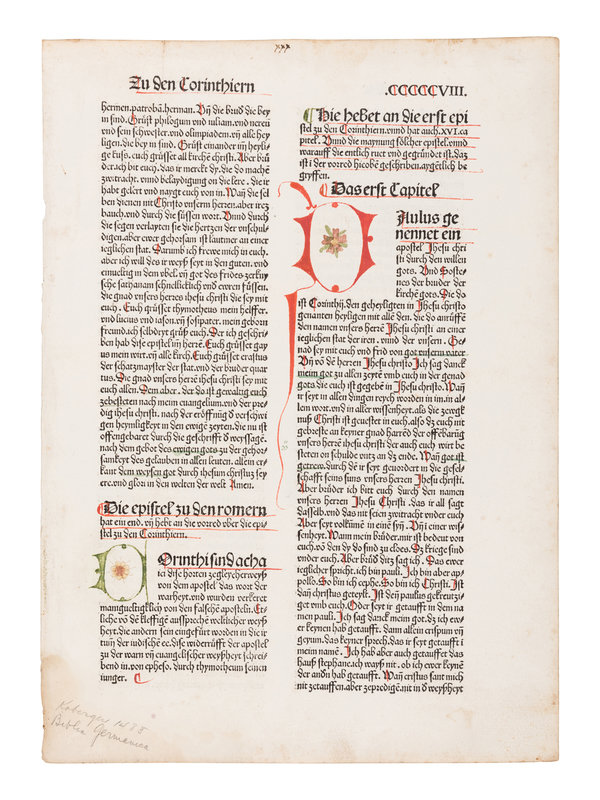 xxx
Zu den Corinthiern
.CCCCCVIII.
hermen. patrobā. herman. Vñ die brůd die bey
in sind. Grüst philogum vnd iuliam. vnd nereū
vnd sein schwester. vnd olimpiadem. vñ alle hey
ligen. die bey in sind. Grüst einander im heyli-
ge kuso. euch grüsset all kirchē christi. Aber brů
der. ich bit euch. das ir merckt dy. die do machē
zwitracht. vnnd belaydigung on die lere. die ir
habt gelert vnd naygt euch von in. Wañ die sel
ben dienen nit Christo vnserm herren. aber irez
bauch. vnd durch die süssen wort. Vnnd durch
die segen verlayten sie die hertzen der vnschul-
digen. aber ewer gehorsam ist lautmer an einer
ieglichen stat. Darumb ich frewe mich in euch.
aber ich will das ir weyß seyt in den guten. vnd
einueltig in dem vbel. vñ got des frides zerknÿ
sche sathanam schnelliklich vnd ewren füssen.
die gnad vnsers herres ihesu christi die sey mit
euch. Euch grüsset thymotheus mein helffer.
vnd lucius vnd iason. vñ sosipater. mein geborn
freund. ich selbdeyt grüß euch. Der ich geschri
ben hab dise epistel im herrē. Euch grüsset gay
us mein wirt. vñ alle kirch. Euch grüsset erastus
der schatzmayster der stat. vnd der brůder quar
tus. Die gnad vnsers herrē ihesu christi sey mit
euch allen. Dem aber. der do ist gewaltig euch
zebestetten nach meim euangelium. vnd der pre
dig ihesu christi. nach der eröffnūg d verschwi
gen heymligkeyt in den ewigē zeyten. die nu ist
offengebaret durch die geschrifft d weyssagē.
nach dem gebot des ewigen gots zu der gehor-
samkeyt des gelauben in allen leuten. allein er-
kant dem weysen got durch ihesum christū z ey
ere. vnd glori in den welten der welt Amen.
Die epistel zu den romern
hat ein end. vñ hebt an die vorred vber die epi-
stel zu den Corinthiern.
Orinthi sind acha
ici dise horten zegleycherweyß
von dem apostel das wort der
warheyt. vnd wurden verkeret
manigueltigklich von den falschē aposteln. Et-
liche vō dē kleffige aussprache weltlicher weyß
heyt. die andern sein eingefürt worden in die ir
rung der iudische ee. dise widerrüfft der apostel
zu der warn vñ euangelischer weyßheyt schrei-
bend in. von epheso. durch thymotheum seinen
iunger.
Hie hebet an die erst epi
stel zu den Corinthiern. vnnd hat auch. XVI. ca
pitel. Vnnd die maynung sölcher epistel. vnnd
warauff die entlich ruet vnd gegründet ist. daz
ist der vorred hieobē geschriben. aygētlich be
gryffen.
Das erst Capitel
Aulus ge
nennet ein
apostel Jhesu chri
sti durch den willen
gots. Vnd Soste-
nes der bruder der
kirchē gots. Die do
ist Corinthij. den geheyligten in Jhesu christo
genanten heyligen mit allē den. die do anrüffē
den namen vnsers herrē Jhesu christi an einer
ieglichen stat der iren. vnnd der vnsern. Ge-
nad sey mit euch vnd frid von got vnserm vater
Vñ vō dē herren Jhesu christo Jch sag danck
meim got zu allen zeytē vmb euch in der genad
gots die euch ist gegebē in Jhesu christo. Wañ
ir seyt in allen dingen reych worden in im. in al-
lem wort. vnd in aller wissenheyt. als die zewgk
nuß Christi ist geuestet in euch. also dz euch nit
gebreste an keyner gnad harrēd der offēbarūg
vnsers herrē ihesu christi der auch euch wirt be
steten on schulde vntz an dz ende. Wañ got ist
getrew. durch dē ir seyt geuordert in die gesel-
schafft seins suns vnsers herren Jhesu christi.
Aber brüder ich bitt euch durch den namen
vnsers herren Jhesu Christi. das ir all sagt
dasselb. vnd das nit seien zwitracht vnder euch
Aber seyt volkūmē in eine syñ. Vñ in einer wis-
senheyt. Wann mein brüder. mir ist bedeut von
euch. vō den dy do sind zu cloes. Dz kriege sind
vnder euch. Aber brüd ditz sag ich. Das ewer
ieglicher spricht. ich bin pauli. Jch bin aber ap-
pollo. So bin ich cephe. So bin ich Christi. Jst
dañ christus geteylt. Jst deñ paulus gekreutzi-
get vmb euch. Oder seyt ir getaufft in dem na
men pauli. Jch sag danck meim got. dz ich ew-
er keynen hab getaufft. dann allein crispum vñ
gayum. das keyner sprech. das ir seyt getaufft i
meim namē. Jch hab aber auch getauffet das
hauß stephane. ich wayß nit. ob ich ewer keynē
der andñ hab getaufft. Wañ cristus sant mich
nit zetauffen. aber zepredigē. nit in d weyßheyt
Koberger 1483
Biblia Germanica